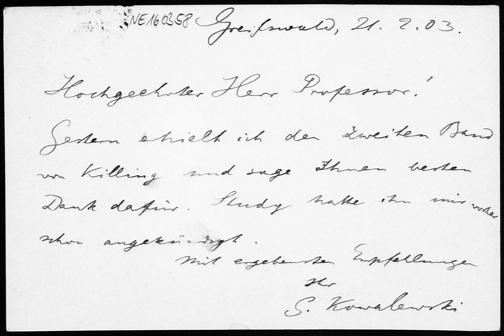 NE160358
Greifswald, 21. 2. 03.
Hochgeehrter Herr Professor!
Gestern erhielt ich den zweiten Band
von Killing und sage Ihnen besten
Dank dafür. Study hatte ihn mir vorher
schon angekündigt.
Mit ergebensten Empfehlungen
Ihr
G. Kowalewski